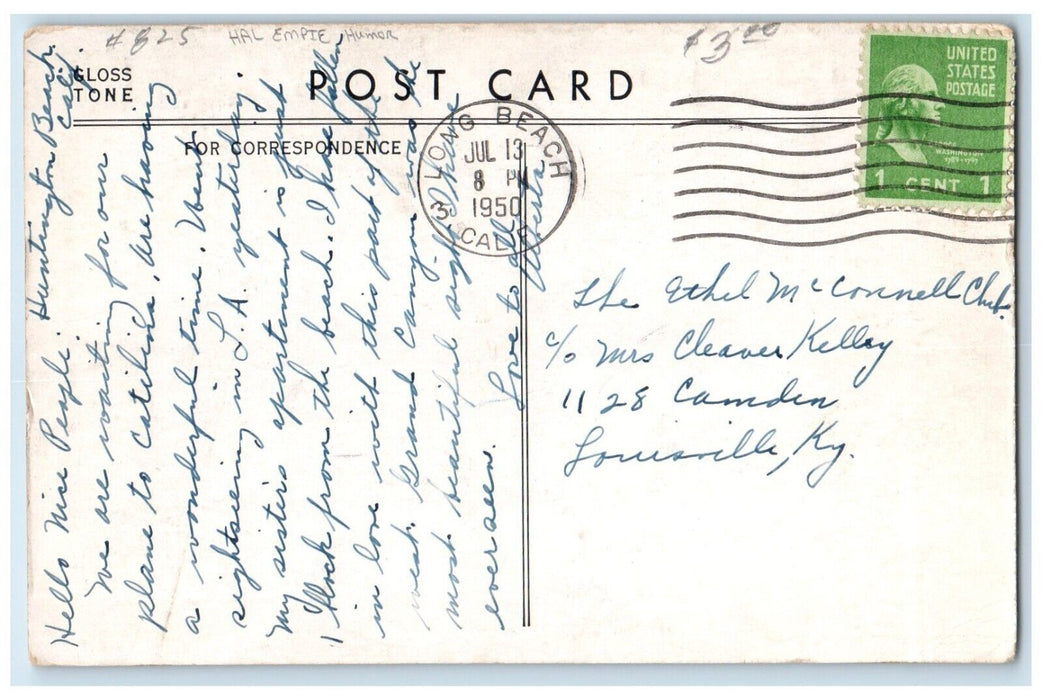 # 825 HAL EMPIE, Humor
$3.00
GLOSS
TONE
POST CARD
FOR CORRESPONDENCE
UNITED
STATES
POSTAGE
GEORGE
WASHINGTON
1789-1797
1 CENT 1
LONG BEACH
JUL 13
8 PM
1950
3 CALIF.
Huntington Beach,
Calif.
Hello Nice People:
We are waiting for our
plane to Catilina, are having
a wonderful time. Went
sightseeing in L.A. yesterday.
My sisters apartment is just
1 block from the beach. I have fallen
in love with this part of the
west. Grand Canyon was the
most beautiful sight I have
ever seen.
Love to all
Alberta.
The Ethel McConnell Club.
c/o Mrs Cleaver Kelley
1128 Camden
Louisville, Ky.